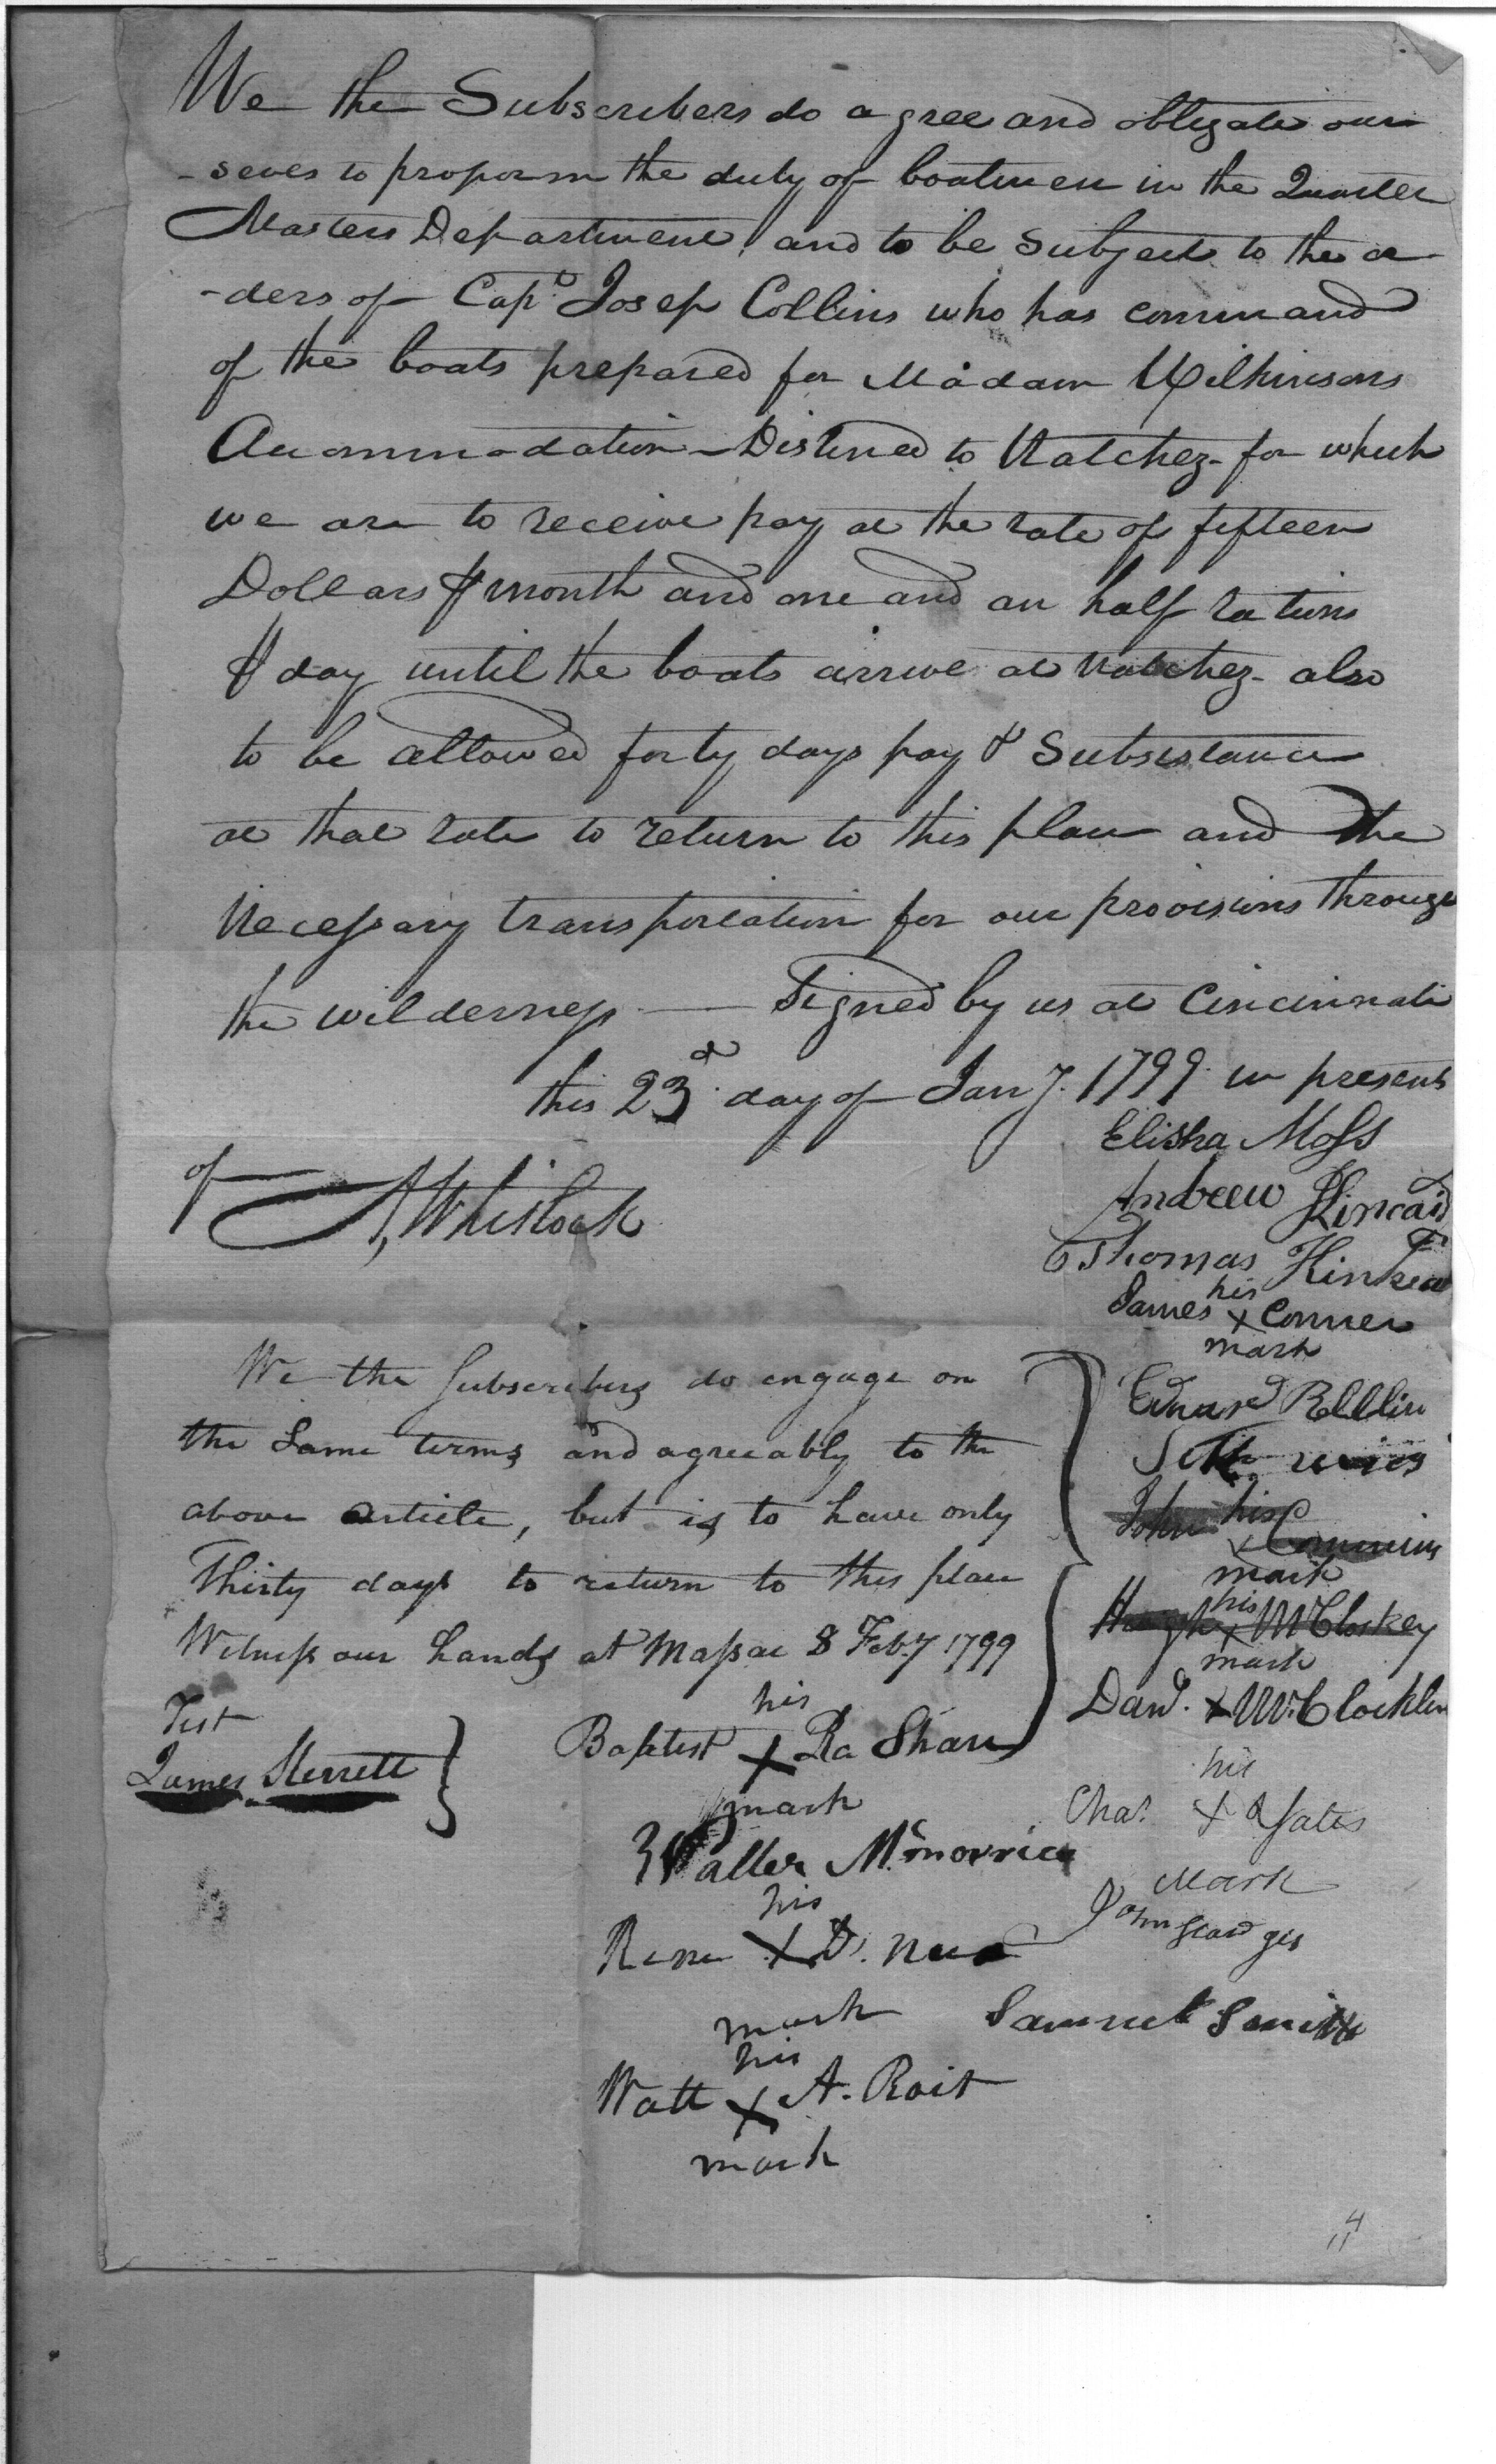 We the Subscribers do agree and obligate our
-seves to proporm the duty of boatmen in the Quarter
Masters Department, and to be Subject to the or
-ders of Capt. Josep Collins who has command
of the boats prepared for Madam Wilkinsons
Accommodation – Distined to Natchez – for which
we are to receive pay at the rate of fifteen
Dollars ⅌ month and one and an half rations
⅌ day until the boats arrive at Natchez – also
to be allowed forty days pay & Subsistance
at that rate to return to this place and the
Necessary transportation for our provisions through
the wilderness — Signed by us at Cincinnati
this 23d. day of Jany. 1799 in presens
of Whistlock
Elisha Moss
Andrew Kincaid
Thomas Kinkead
his
James x Conner
mark
Edward
Seth
his
John x
mark
his
Hugh x McCloskey
mark
Danl. x McClocklin
his
Chas. x Yates
Mark
John
Samuel Smith
We the Subscribers do engage on
the Same terms and agreeably to the
above article, but is to have only
Thirty days to return to this place
Witness our hands at Massac 8 Feby 1799
Test
James Sterrett
his
Baptist x La Shan
mark
Walter McMorrice
his
Rene x D.
mark
his
Watt x A. Roit
mark
4
11